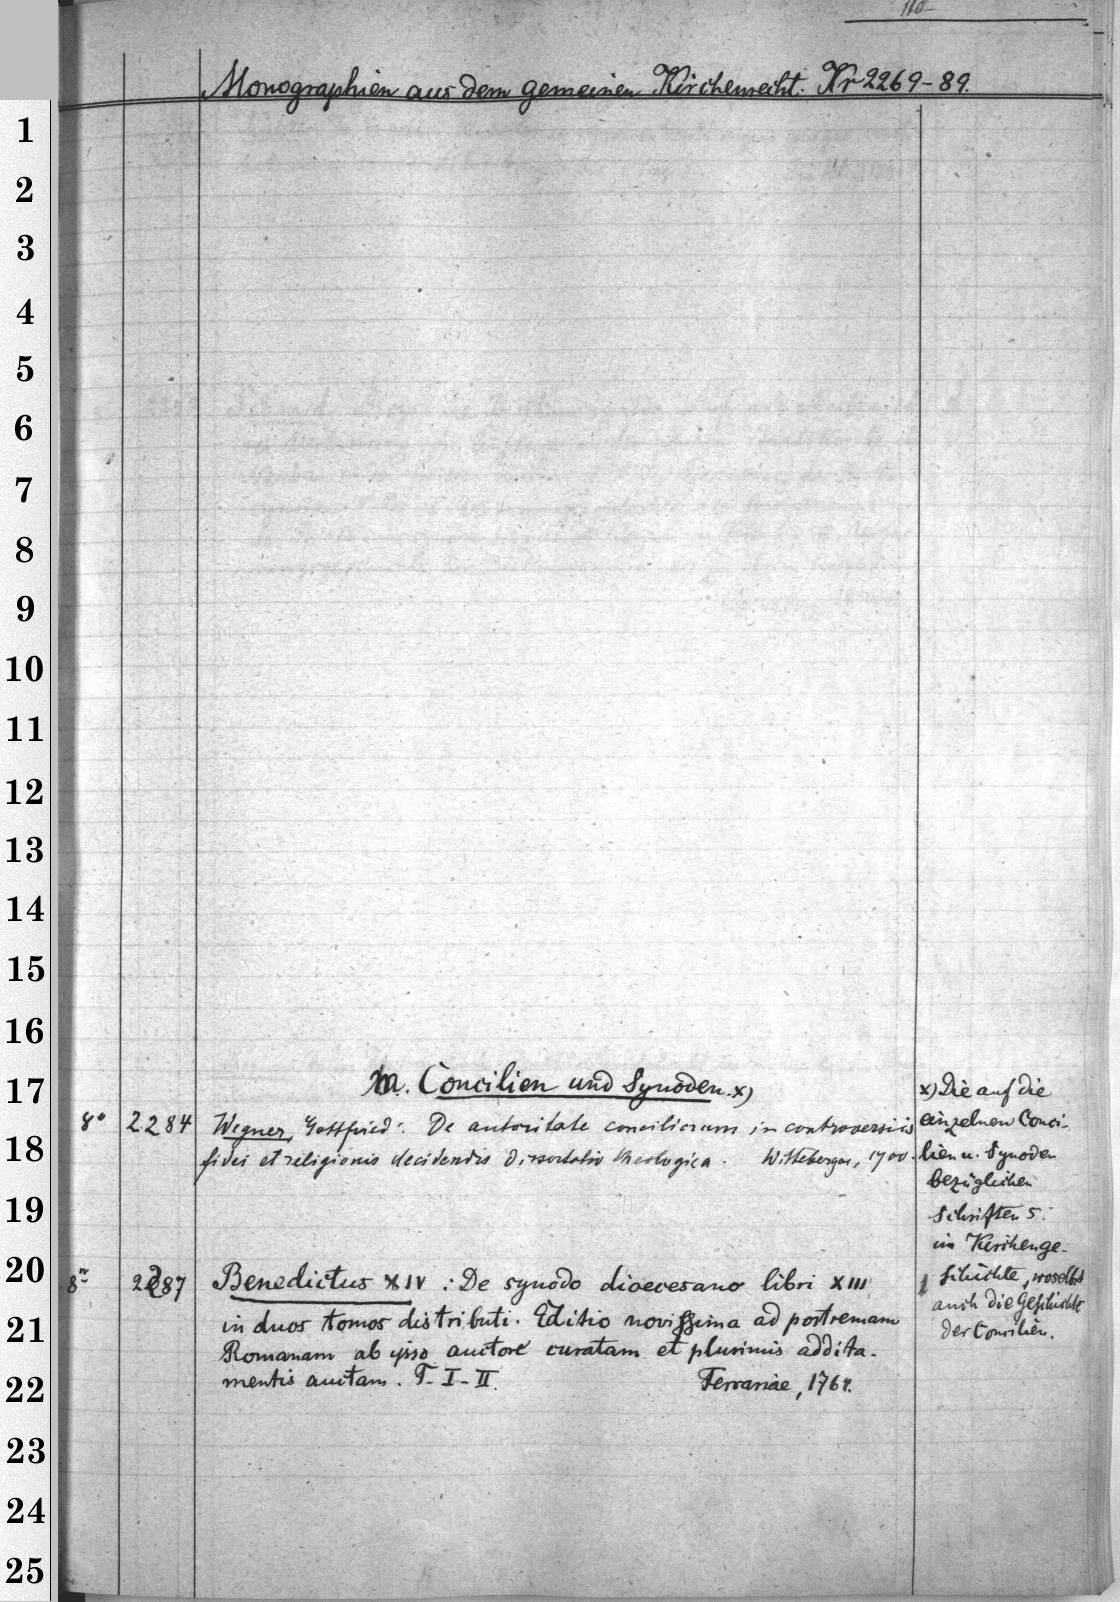 110-
Monographien aus dem gemeinen Kirchenrecht. Nr 2269-89.
1
2
3
4
5
6
7
8
9
10
11
12
13
14
15
16
17
18
19
20
21
22
23
24
25
m. Concilien und Synoden. x)
8° 2284 Wegner, Gottfried: De autoritate conciliorum in controversiis
fidei et religionis decidendis dissertatio theologica. Wittebergae, 1700.
8° 2287 Benedictus XIV : De synodo dioecesano libri XIII
in duos tomos distributi. Editio novissima ad postremam
Romanam ab ipso auctore curatam et plurimis addita-
mentis auctam. T. I-II. Ferrariae, 1764.
x) Die auf die
einzelnen Conci-
lien u. Synoden
bezüglichen
Schriften s.
in Kirchenge-
schichte, woselbst
auch die Geschichte
der Concilien.